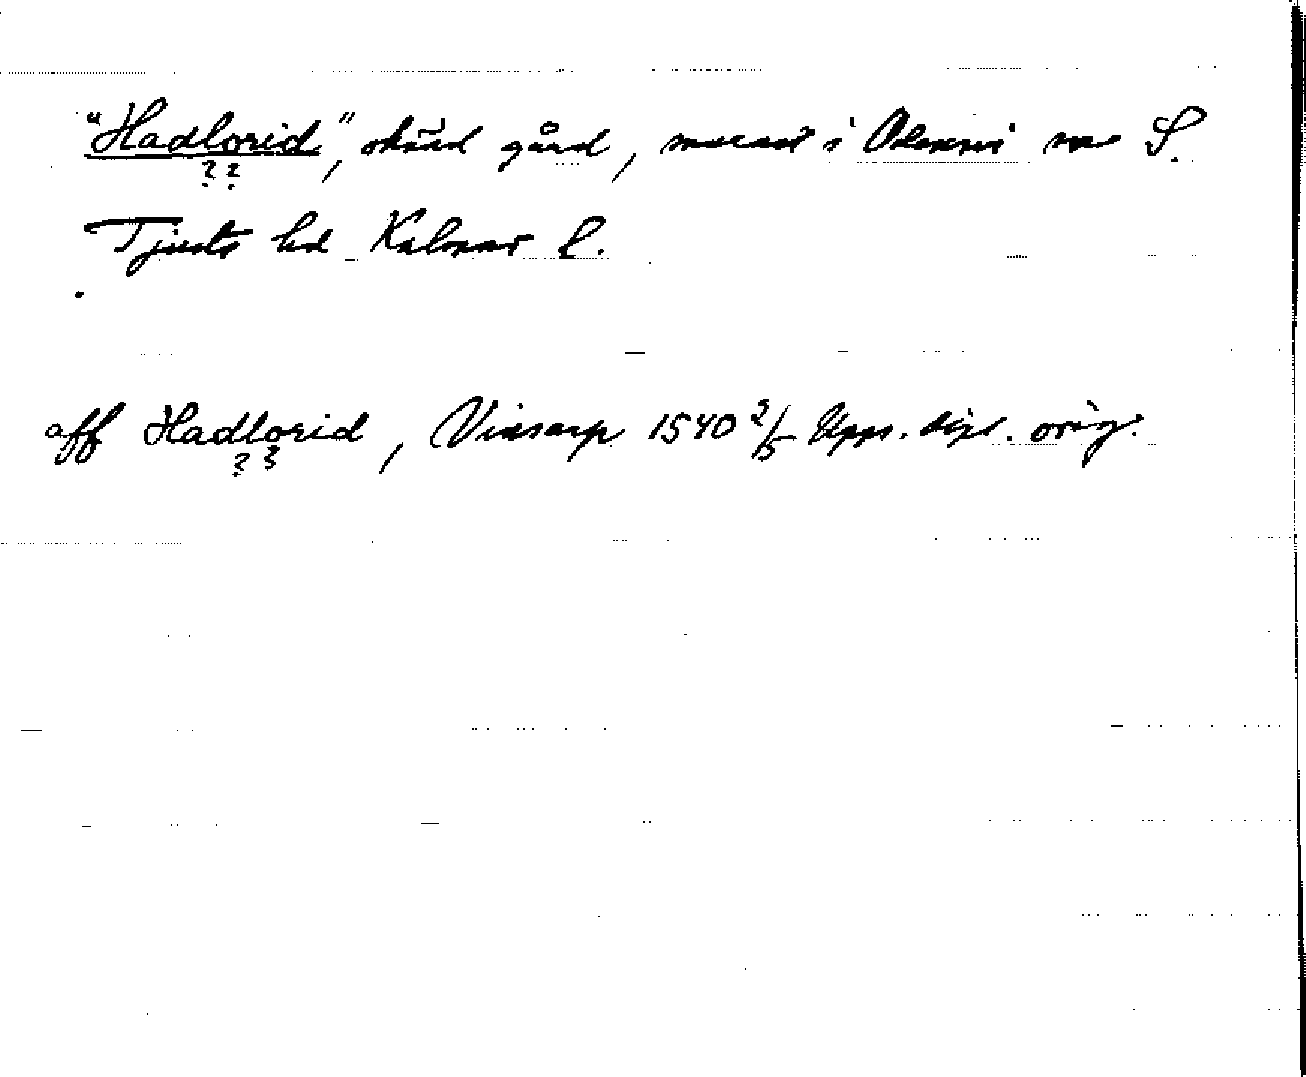 "Hadlorid", okänd gård, senast i Odensvi sn S.
??
Tjusts hd Kalmar l.
aff Hadlorid, Vinsarp 1540 2/5 Upps. dipl. orig.
??